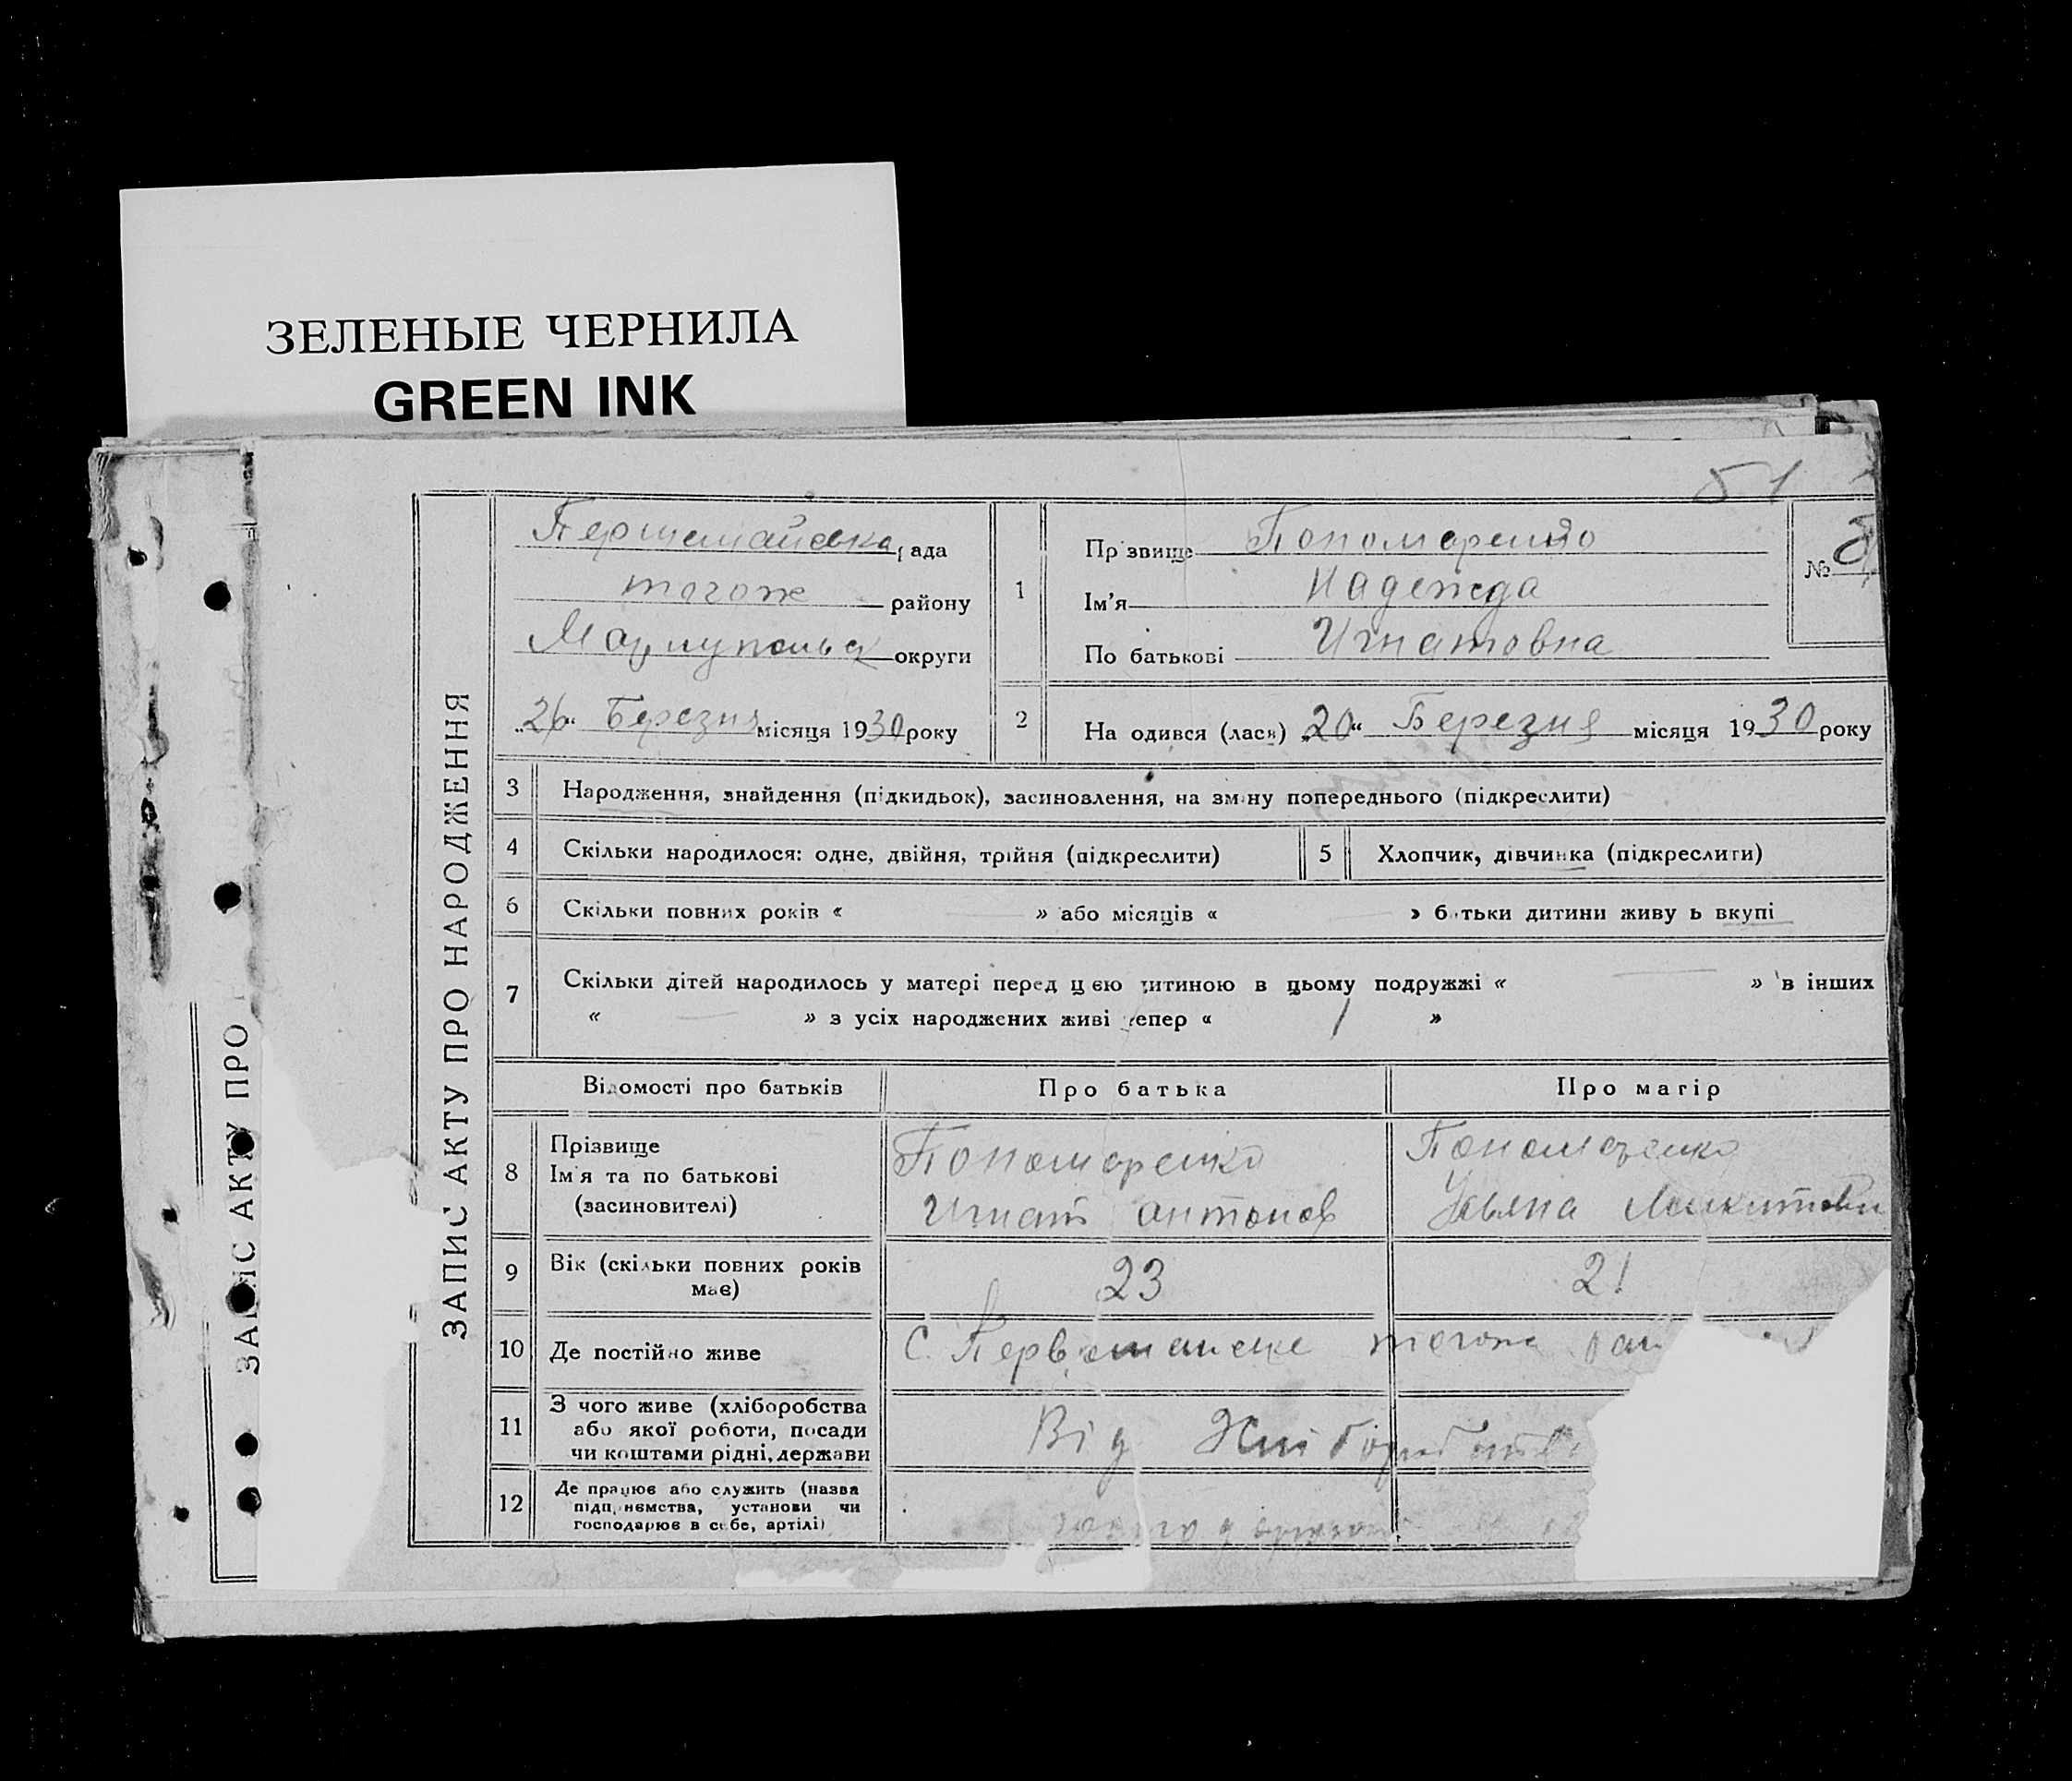 ЗЕЛЕНЫЕ ЧЕРНИЛА
GREEN INK
51
ЗАПИС АКТУ ПРО
ЗАПИС АКТУ ПРО НАРОДЖЕННЯ
Першемайська рада
тогож району
Маріупольск округи
„26“ Березня місяця 1930 року
1
Прізвище Пономаренко
Ім'я Надежда
По батькові Игнатовна
№
2
На одився (лася) „20“ Березня місяця 1930 року
3 Народження, знайдення (підкидьок), засиновлення, на зміну попереднього (підкреслити)
4 Скільки народилося: одне, двійня, трійня (підкреслити)
5 Хлопчик, дівчинка (підкреслити)
6 Скільки повних років « — » або місяців « — » батьки дитини живуть вкупі
7 Скільки дітей народилось у матері перед цією дитиною в цьому подружжі « — » в інших
« — » з усіх народжених живі тепер « 1 »
Відомості про батьків Про батька Про матір
8 Прізвище
Ім'я та по батькові
(засиновителі)
Пономаренко
Игнат Антонов
Пономаренко
Ульяна Микитовн
9 Вік (скільки повних років
має)
23 21
10 Де постійно живе С. Первомайське тогож рай
11 З чого живе (хліборобства
або якої роботи, посади
чи коштами рідні, держави
Від Хліборобств
12 Де працює або служить (назва
підприємства, установи чи
господарює в себе, артілі)